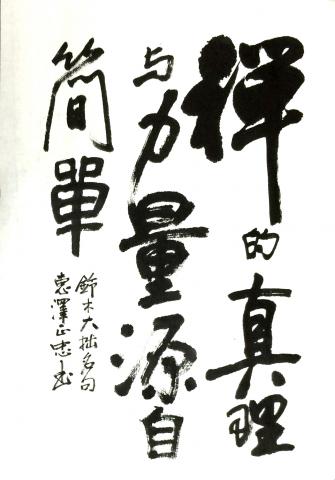 禅的真理
与力量源自
简單
鈴木大拙名句
惠澤正忠书